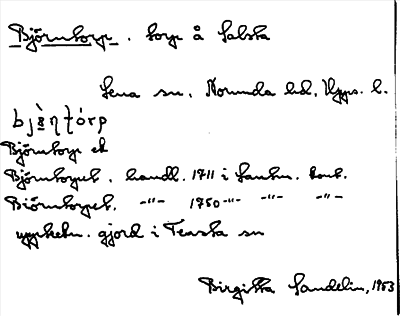 Björntorp. torp å Salsta
Lena sn, Norunda hd, Upps. l.
Björntorp et
Björntorpet. handl. 1711 i Lantm. kont.
Biörntorpet. -"- 1750 -"- -"- -"-
uppteckn. gjord i Tensta sn
Birgitta Sandelin, 1953